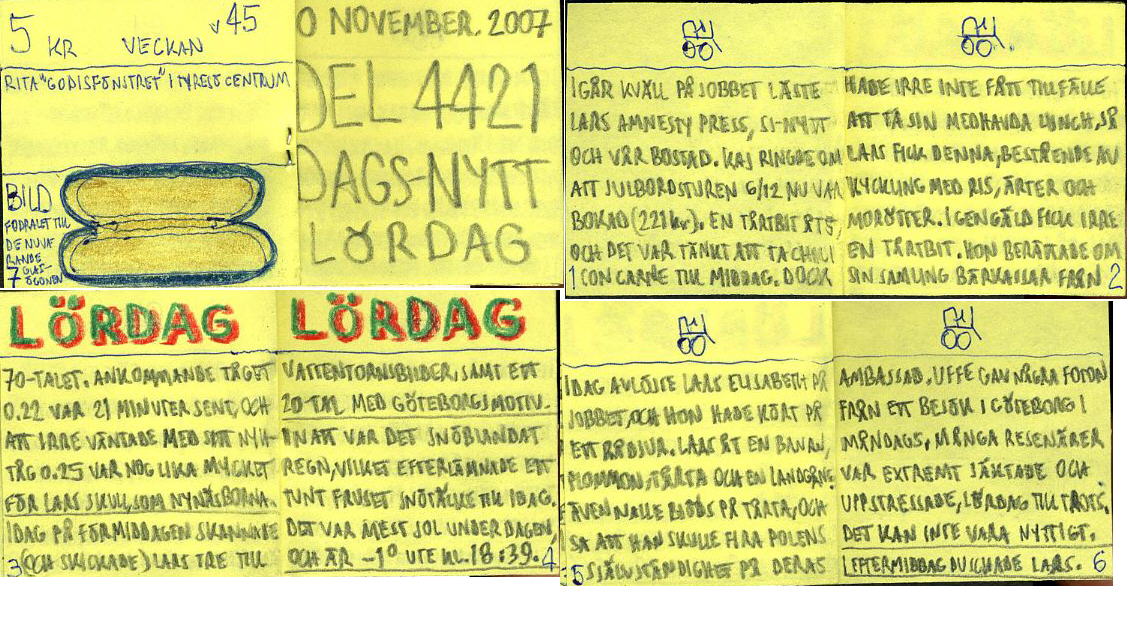 5 KR VECKAN v 45
RITA "GODISFÖNSTRET" I TYRESÖ CENTRUM
BILD
FODRALET TILL
DE NUVA
RANDE
GLAS-
7 ÖGONEN
0 NOVEMBER. 2007
DEL 4421
DAGS-NYTT
LÖRDAG
IGÅR KVÄLL PÅ JOBBET LÄSTE
LARS AMNESTY PRESS, SI-NYTT
OCH VÅR BOSTAD. KAJ RINGDE OM
ATT JULBORDSTUREN 6/12 NU VAR
BOKAD (221 kr). EN TÅRTBIT ÅTS,
OCH DET VAR TÄNKT ATT TA CHILI
1 CON CARNE TILL MIDDAG. DOCK
HADE IRRE INTE FÅTT TILLFÄLLE
ATT TA SIN MEDHAVDA LUNCH, SÅ
LARS FICK DENNA, BESTÅENDE AV
KYCKLING MED RIS, ÄRTER OCH
MORÖTTER. I GENGÄLD FICK IRRE
EN TÅRTBIT. HON BERÄTTADE OM
SIN SAMLING BÄRKASSAR FRÅN 2
LÖRDAG
70-TALET. ANKOMMANDE TÅGET
0.22 VAR 21 MINUTER SENT, OCH
ATT IRRE VÄNTADE MED SITT NYH-
TÅG 0.25 VAR NOG LIKA MYCKET
FÖR LARS SKULL, SOM NYNÄSBORNA.
IDAG PÅ FÖRMIDDAGEN SKANNADE
3 (OCH SKICKADE) LARS TRE TILL
LÖRDAG
VATTENTORNSBILDER, SAMT ETT
20-TAL MED GÖTEBORGSMOTIV.
INATT VAR DET SNÖBLANDAT
REGN, VILKET EFTERLÄMNADE ETT
TUNT FRUSET SNÖTÄCKE TILL IDAG.
DET VAR MEST SOL UNDER DAGEN,
OCH ÄR -1° UTE KL. 18:39. 4
IDAG AVLÖSTE LARS ELISABETH PÅ
JOBBET, OCH HON HADE KÖRT PÅ
ETT RÅDJUR. LARS ÅT EN BANAN,
PLOMMON, TÅRTA OCH EN LANDGÅNG.
ÄVEN NALLE BJÖDS PÅ TÅRTA, OCH
SA ATT HAN SKULLE FIRA POLENS
5 SJÄLVSTÄNDIGHET PÅ DERAS
AMBASSAD. UFFE GAV NÅGRA FOTON
FRÅN ETT BESÖK I GÖTEBORG I
MÅNDAGS. MÅNGA RESENÄRER
VAR EXTREMT JÄKTADE OCH
UPPSTRESSADE, LÖRDAG TILL TROTS.
DET KAN INTE VARA NYTTIGT.
I EFTERMIDDAG DUSCHADE LARS. 6